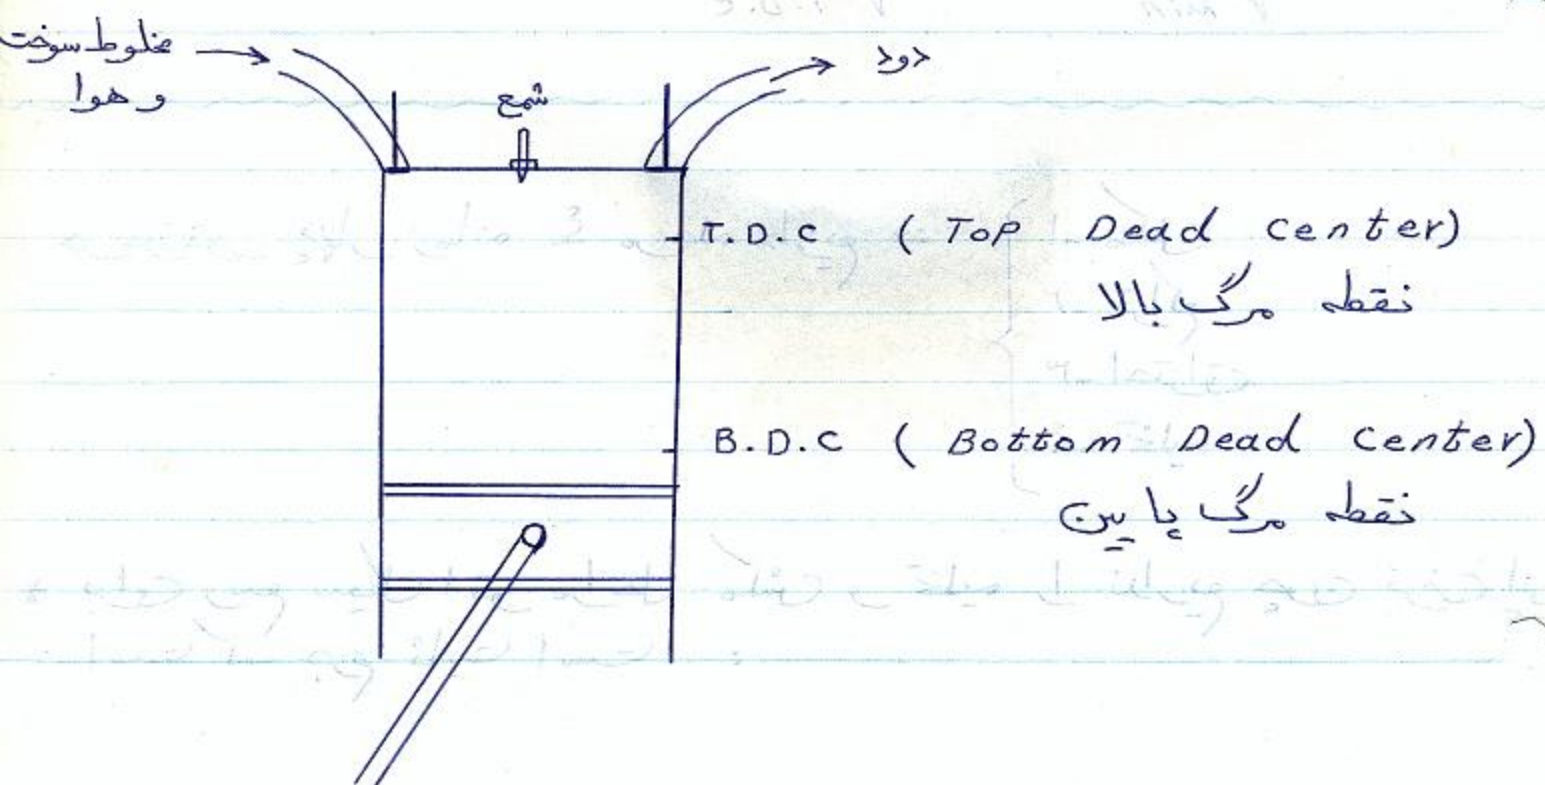 مخلوط سوخت
و هوا
شمع
دود
T.D.C ( Top Dead Center)
نقطه مرگ بالا
B.D.C ( Bottom Dead Center)
نقطه مرگ پایین